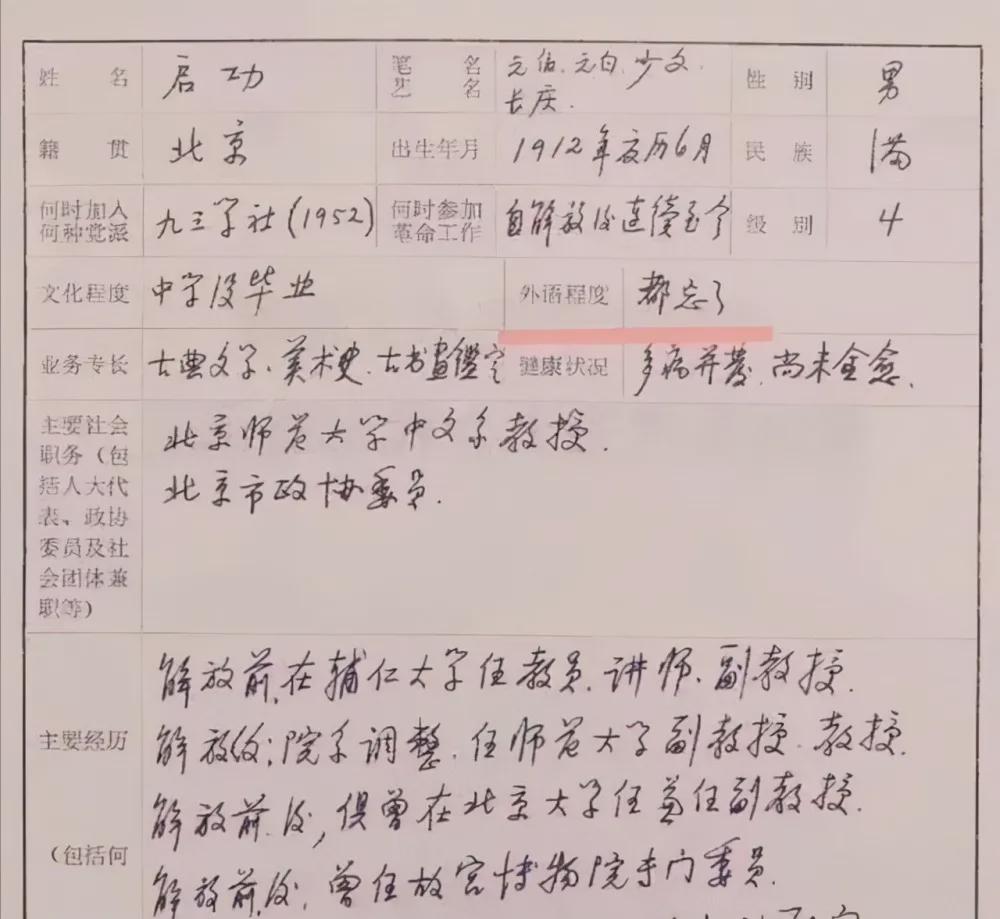 姓名 启功 笔名 艺名 元伯、元白、少文、长庆. 性别 男
籍贯 北京 出生年月 1912年夏历6月 民族 满
何时加入何种党派 九三学社(1952) 何时参加革命工作 自解放后连续至今 级别 4
文化程度 中学没毕业 外语程度 都忘了
业务专长 古典文学、美术史、古书畫鑑定 健康状况 多病并发、尚未全愈、
主要社会
职务(包
括人大代
表、政协
委员及社
会团体兼
职等)
北京师范大学中文系教授.
北京市政协委员.
主要经历
(包括何
解放前,在辅仁大学任教员、讲师、副教授.
解放后;院系调整、任师范大学副教授、教授.
解放前、后,俱曾在北京大学任兼任副教授.
解放前、后、曾任故宫博物院专门委员.